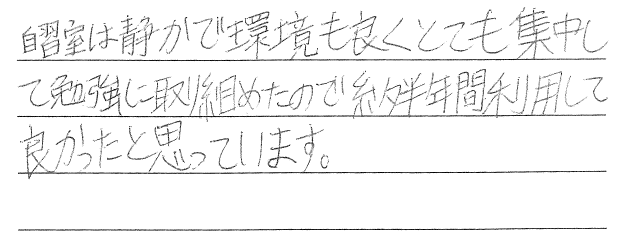 自習室は静かで環境も良くとても集中し
て勉強に取り組めたので約半年間利用して
良かったと思っています。